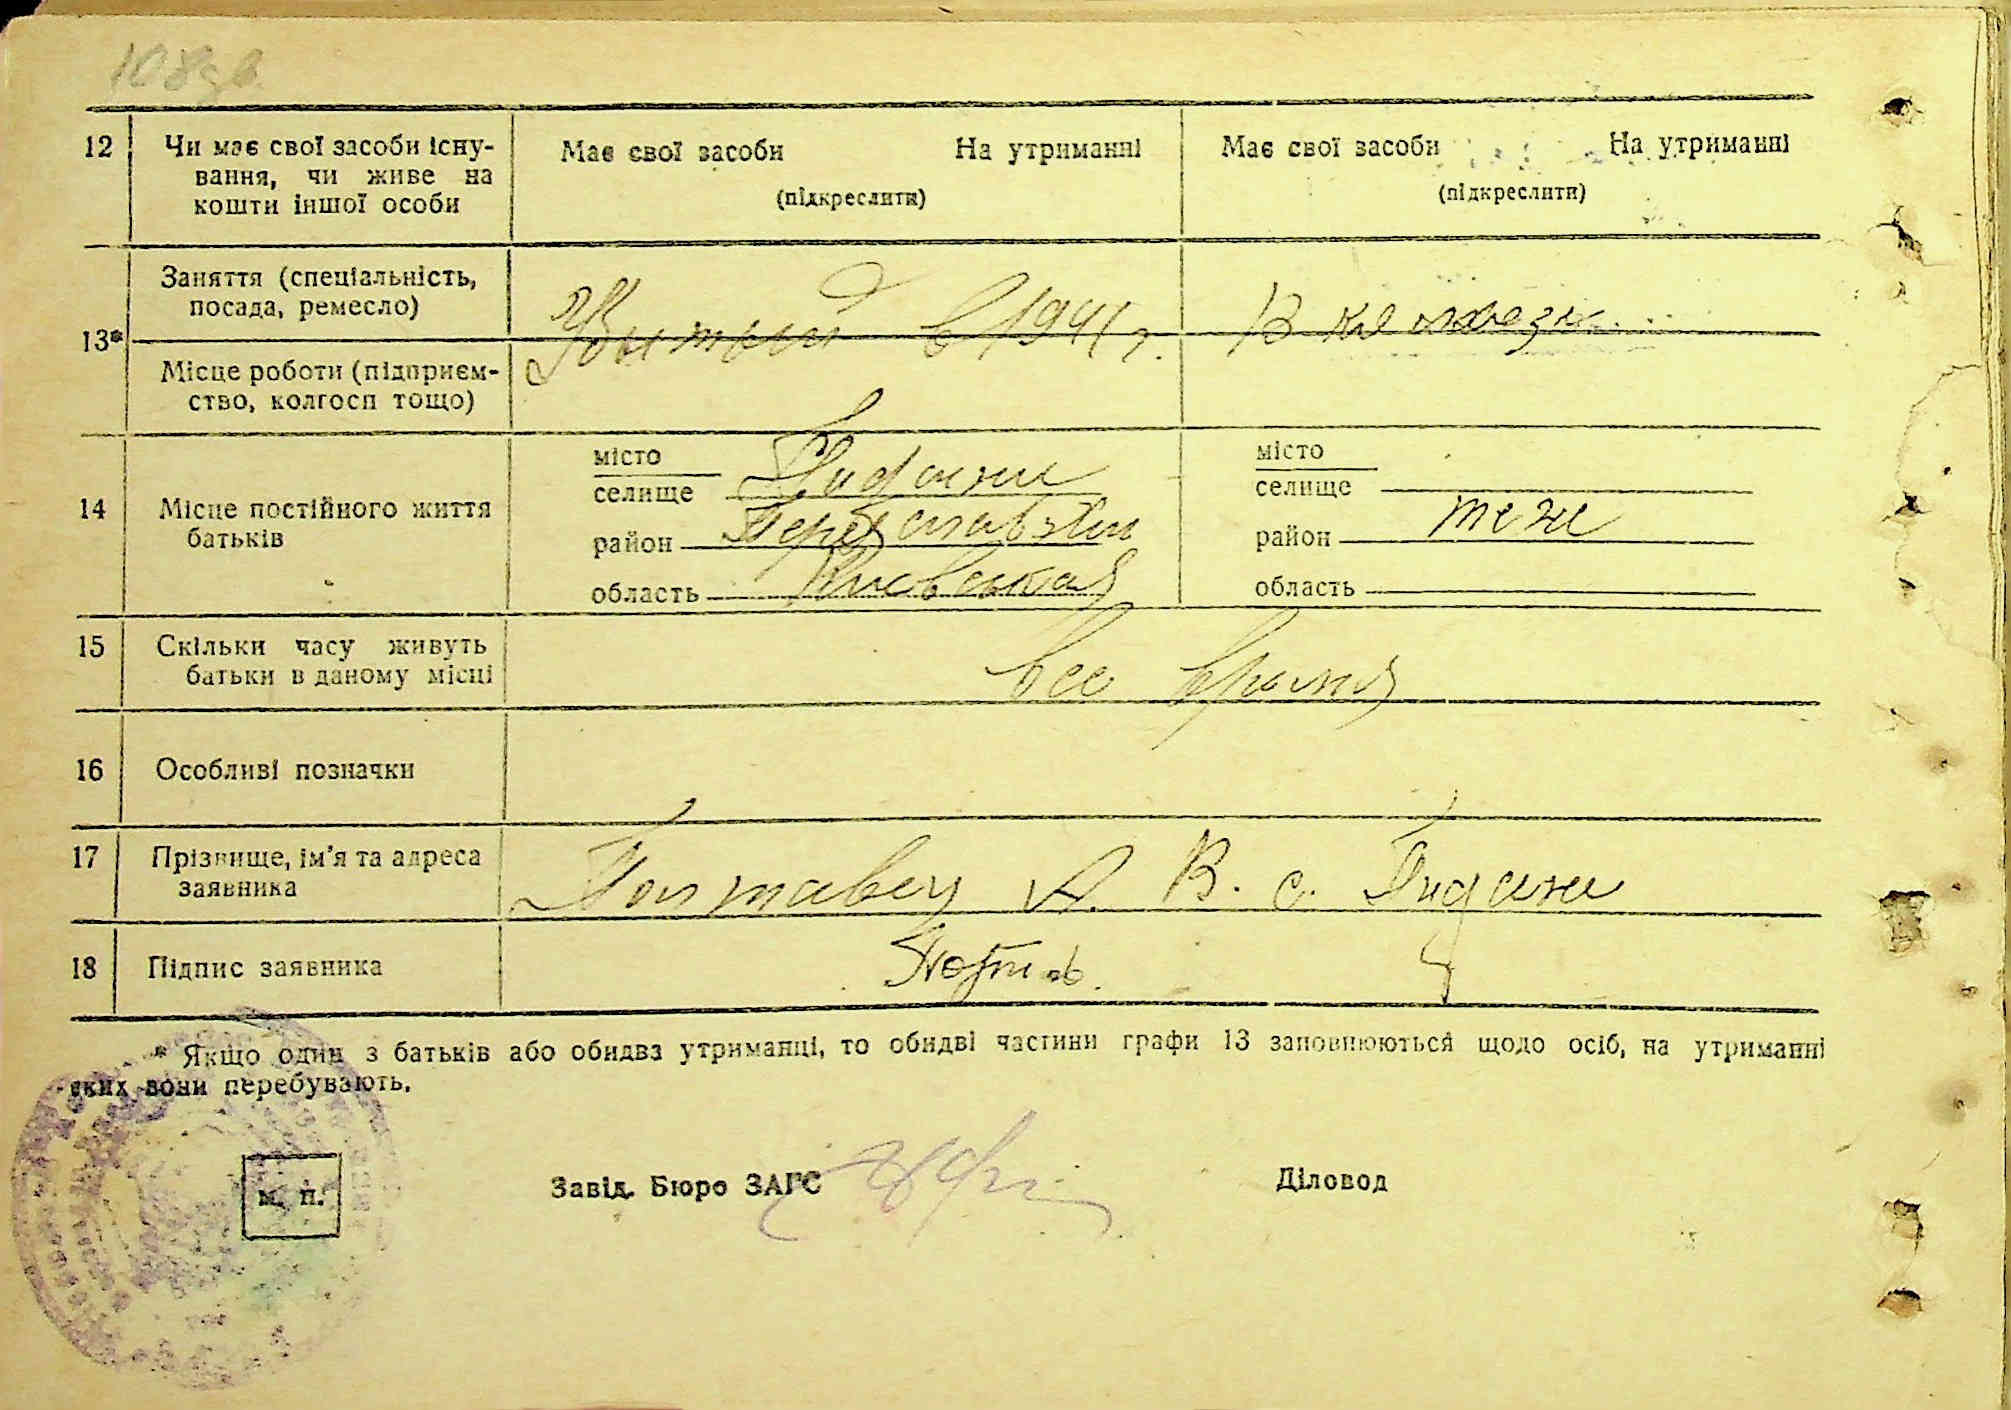 108зв.
12 Чи має свої засоби існу-
вання, чи живе на
кошти іншої особи
Має свої засоби На утриманні
(підкреслити)
Має свої засоби На утриманні
(підкреслити)
13*
Заняття (спеціальність,
посада, ремесло)
Убитый в 1941 г.
В колхозе
Місце роботи (підприєм-
ство, колгосп тощо)
14 Місце постійного життя
батьків
місто
селище
район Переяславский
область Киевская
місто
селище
район теже
область
15 Скільки часу живуть
батьки в даному місці
все время
16 Особливі позначки
17 Прізвище, ім'я та адреса
заявника
Полтавец А. В. с.
18 Підпис заявника
* Якщо один з батьків або обидва утриманці, то обидві частини графи 13 заповнюються щодо осіб, на утриманні
яких вони перебувають.
м. п.
Завід. Бюро ЗАГС
Діловод